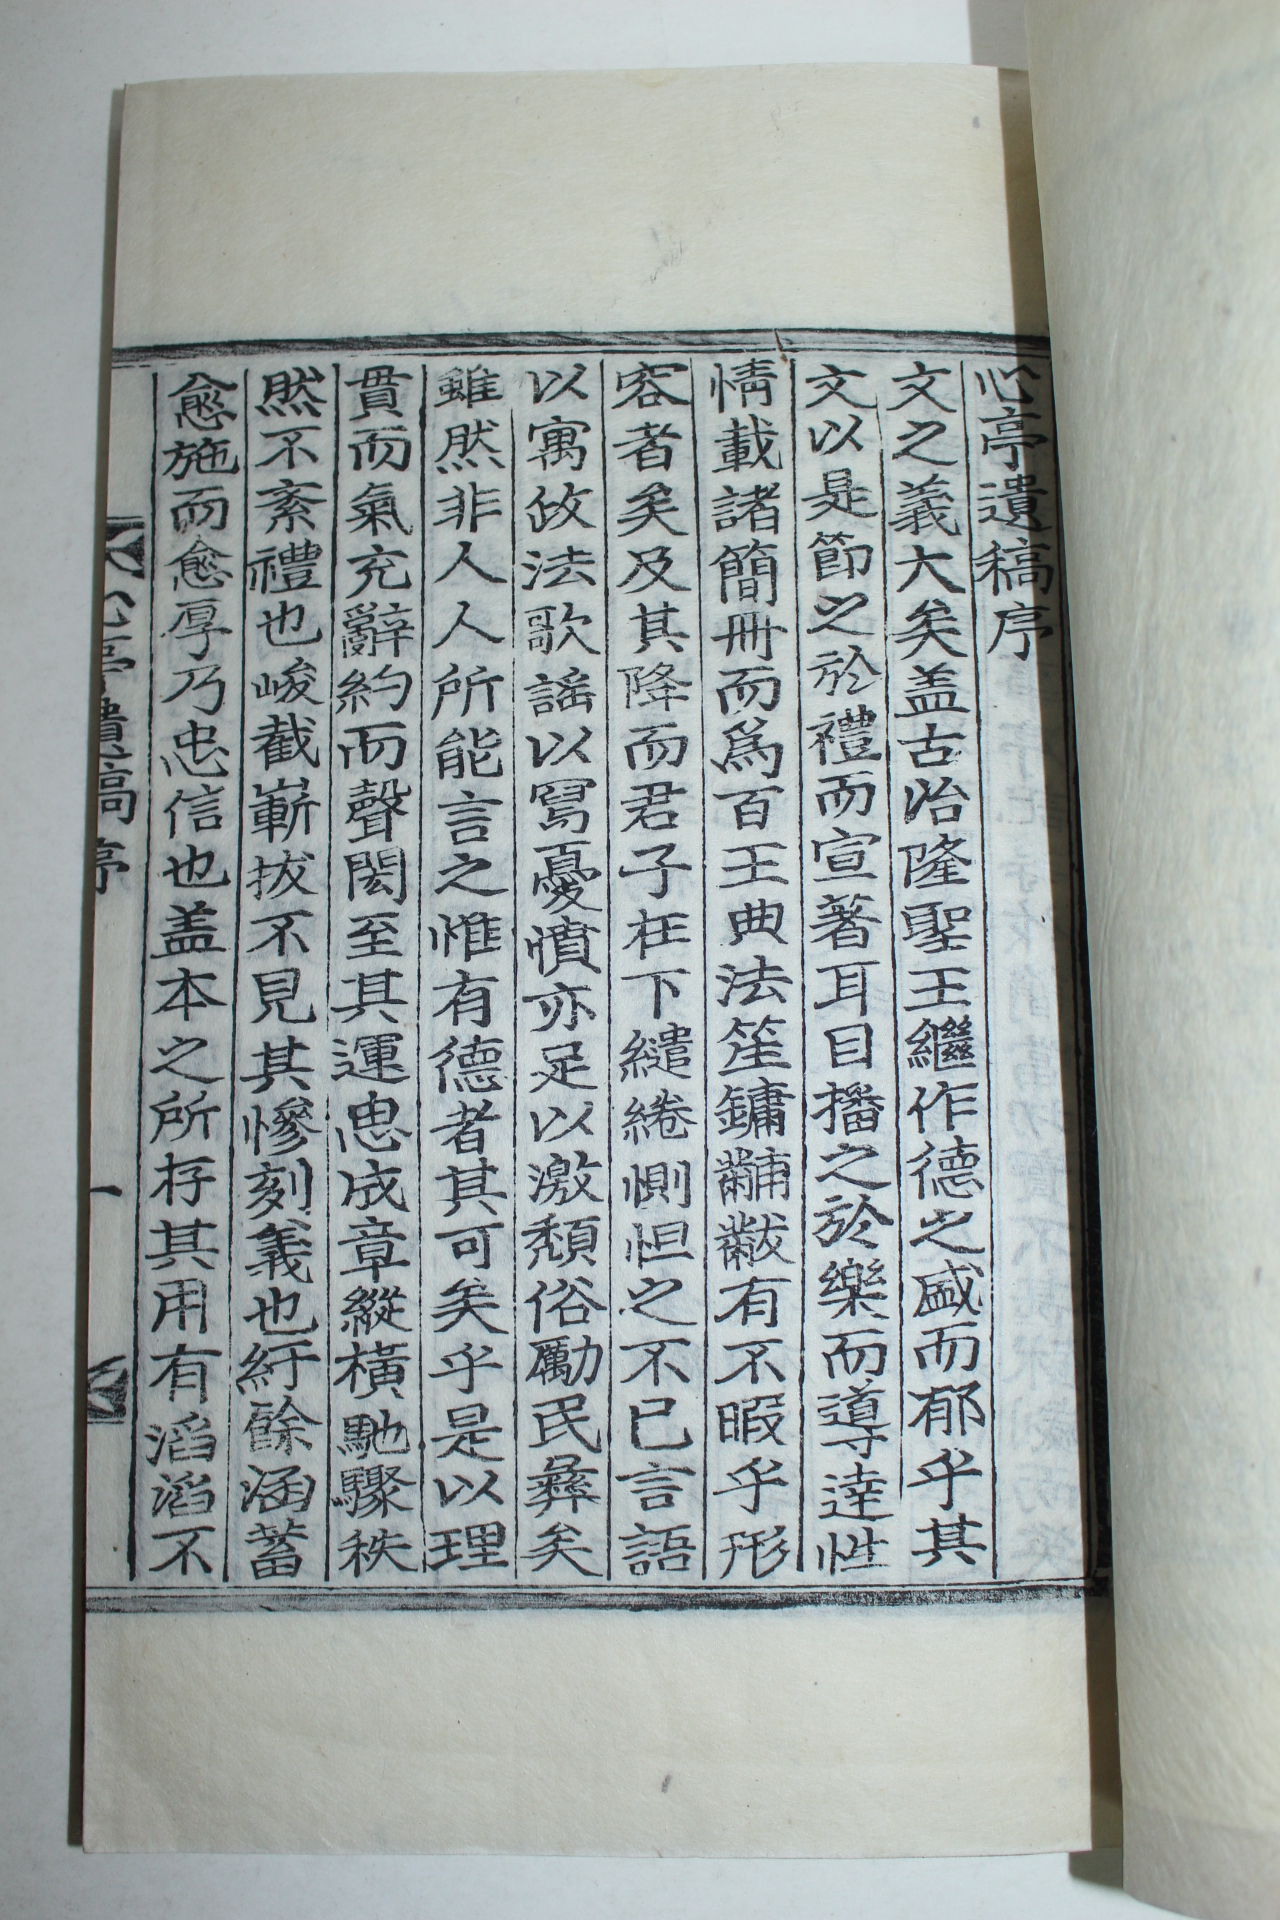 心亭遺稿序
文之義大矣盖古治隆聖王繼作德之盛而郁乎其
文以是節之於禮而宣著耳目播之於樂而導達性
情載諸簡冊而爲百王典法笙鏞黼黻有不暇乎形
容者矣及其降而君子在下繾綣惻怛之不已言語
以寓政法歌謠以寫憂憤亦足以激頹俗勵民彛矣
雖然非人人所能言之惟有德者其可矣乎是以理
貫而氣充辭約而聲閎至其運思成章縱橫馳驟秩
然不紊禮也峻截嶄拔不見其慘刻義也紆餘涵蓄
愈施而愈厚乃忠信也盖本之所存其用有滔滔不
心亭遺稿序
一